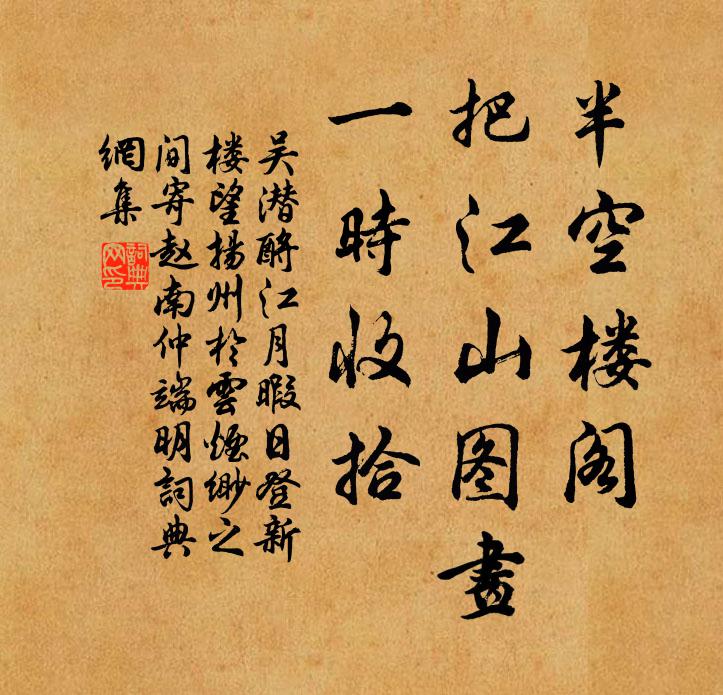 半空楼阁
把江山图畫
一時收拾
吴潜酹江月暇日登新
楼望揚州於雲煙緲之
间寄赵南仲端明詞典
網集
詞典网印